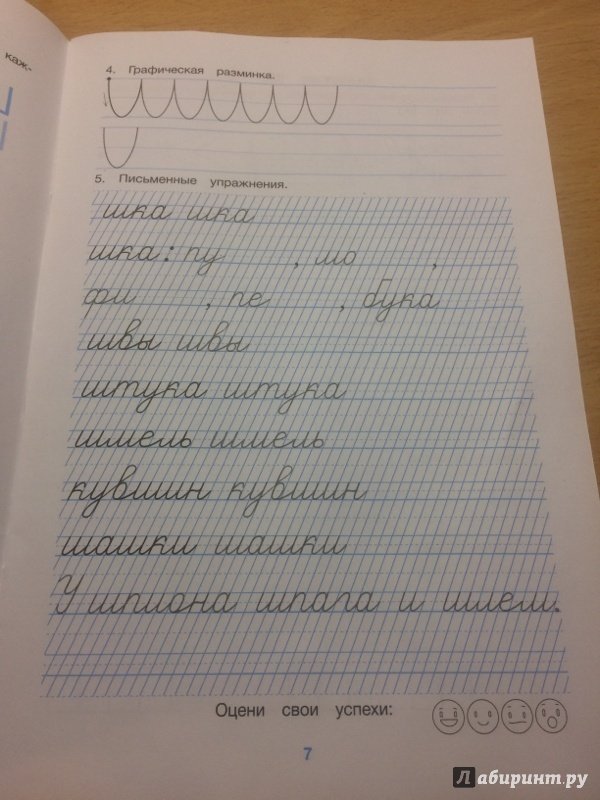 каж-
4. Графическая разминка.
5. Письменные упражнения.
шка шка
шка: пу , мо ,
фи , пе , бука
швы швы
штука штука
шмель шмель
кувшин кувшин
шашки шашки
У шпиона шпага и шлем.
Оцени свои успехи:
7
Лабиринт.ру